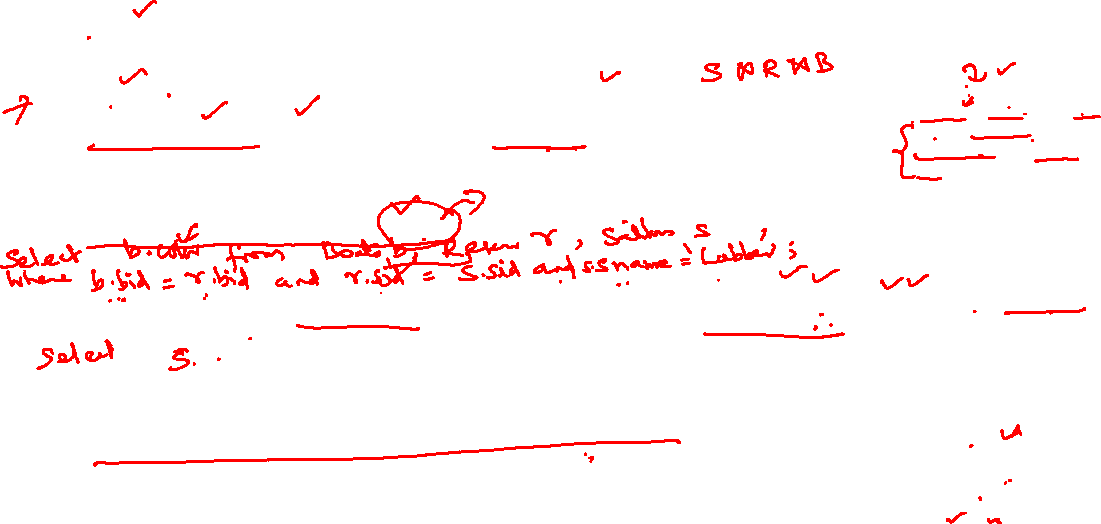 S ⋈ R ⋈ B
2
Select b.color from Boats b, Reserves r, Sailors s
Where b.bid = r.bid and r.sid = s.sid and s.sname = 'Lubber';
Select s.